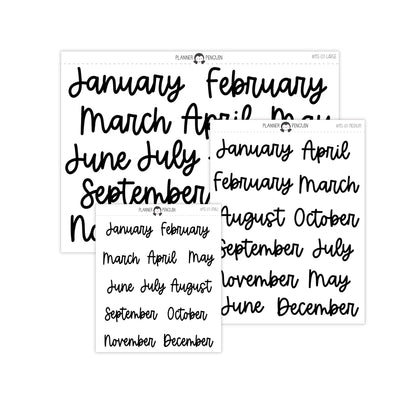 PLANNER PENGUIN
January February
March April May
June July
September
PLANNER PENGUIN
January April
February March
August October
September July
November May
June December
PLANNER PENGUIN
January February
March April May
June July August
September October
November December